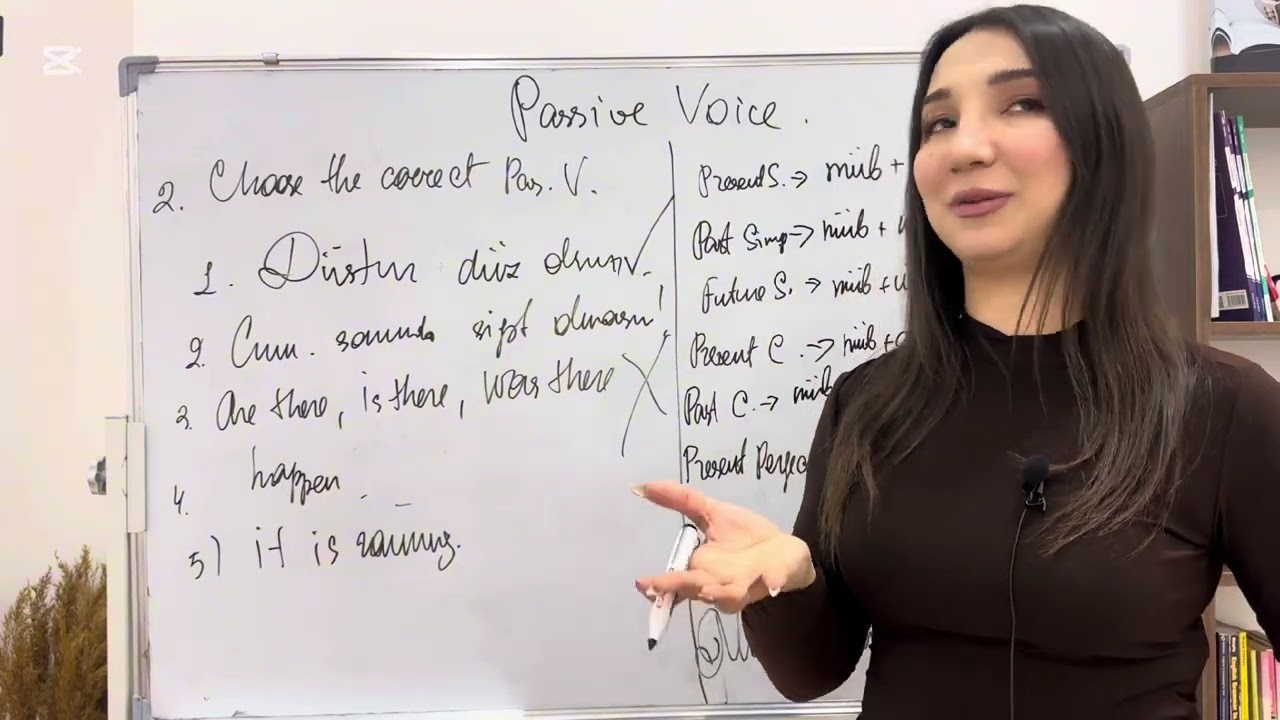 Passive Voice.
2. Choose the correct Pas. V.
1. Düstur düz olsun V.
2. Cüm. sonunda sifət olmasın!
3. Are there, is there, was there
4. happen
5) it is raining.
Present S. → müb +
Past Simp → müb +
Future S. → müb +
Present C. → müb +
Past C. → müb
Present Perfec